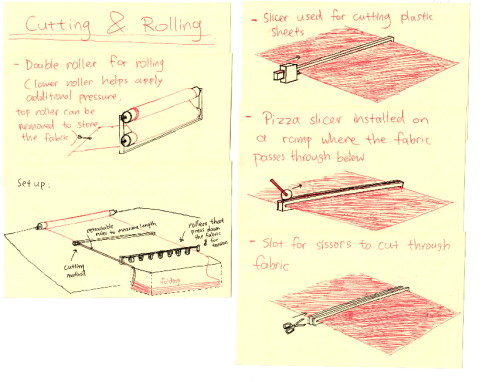 Cutting & Rolling
- Double roller for rolling
(lower roller helps apply
additional pressure,
top roller can be
removed to store
the fabric
Set up:
retractable
ruler to measure length
rollers that
press down
the fabric
for
tension
cutting
method
folding
- Slicer used for cutting plastic
sheets
- Pizza slicer installed on
a ramp where the fabric
passes through below
- Slot for sissors to cut through
fabric